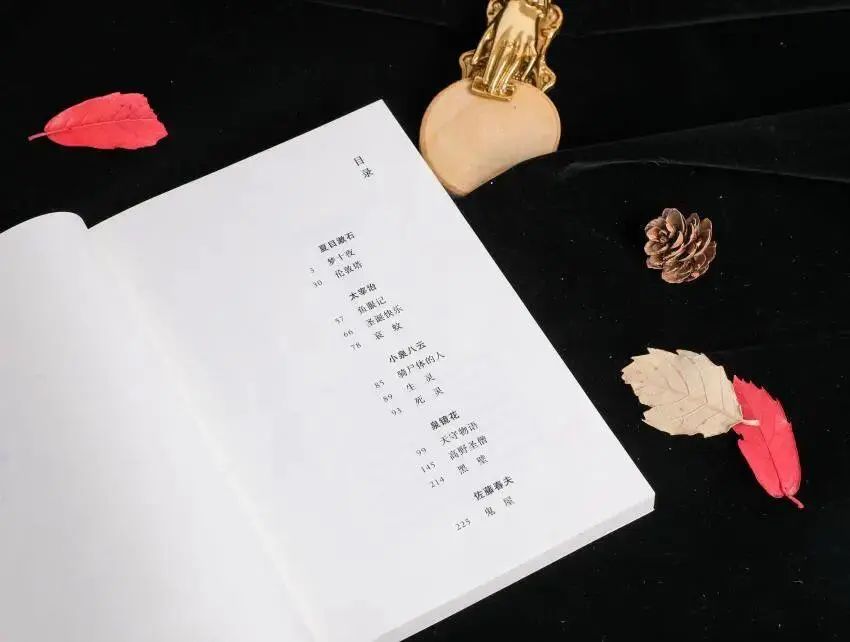 目录
夏目漱石
3 梦十夜
30 伦敦塔
太宰治
57 鱼服记
66 圣诞快乐
78 哀 蚊
小泉八云
85 骑尸体的人
89 生 灵
93 死 灵
泉镜花
99 天守物语
145 高野圣僧
214 黑 壁
佐藤春夫
225 鬼 屋